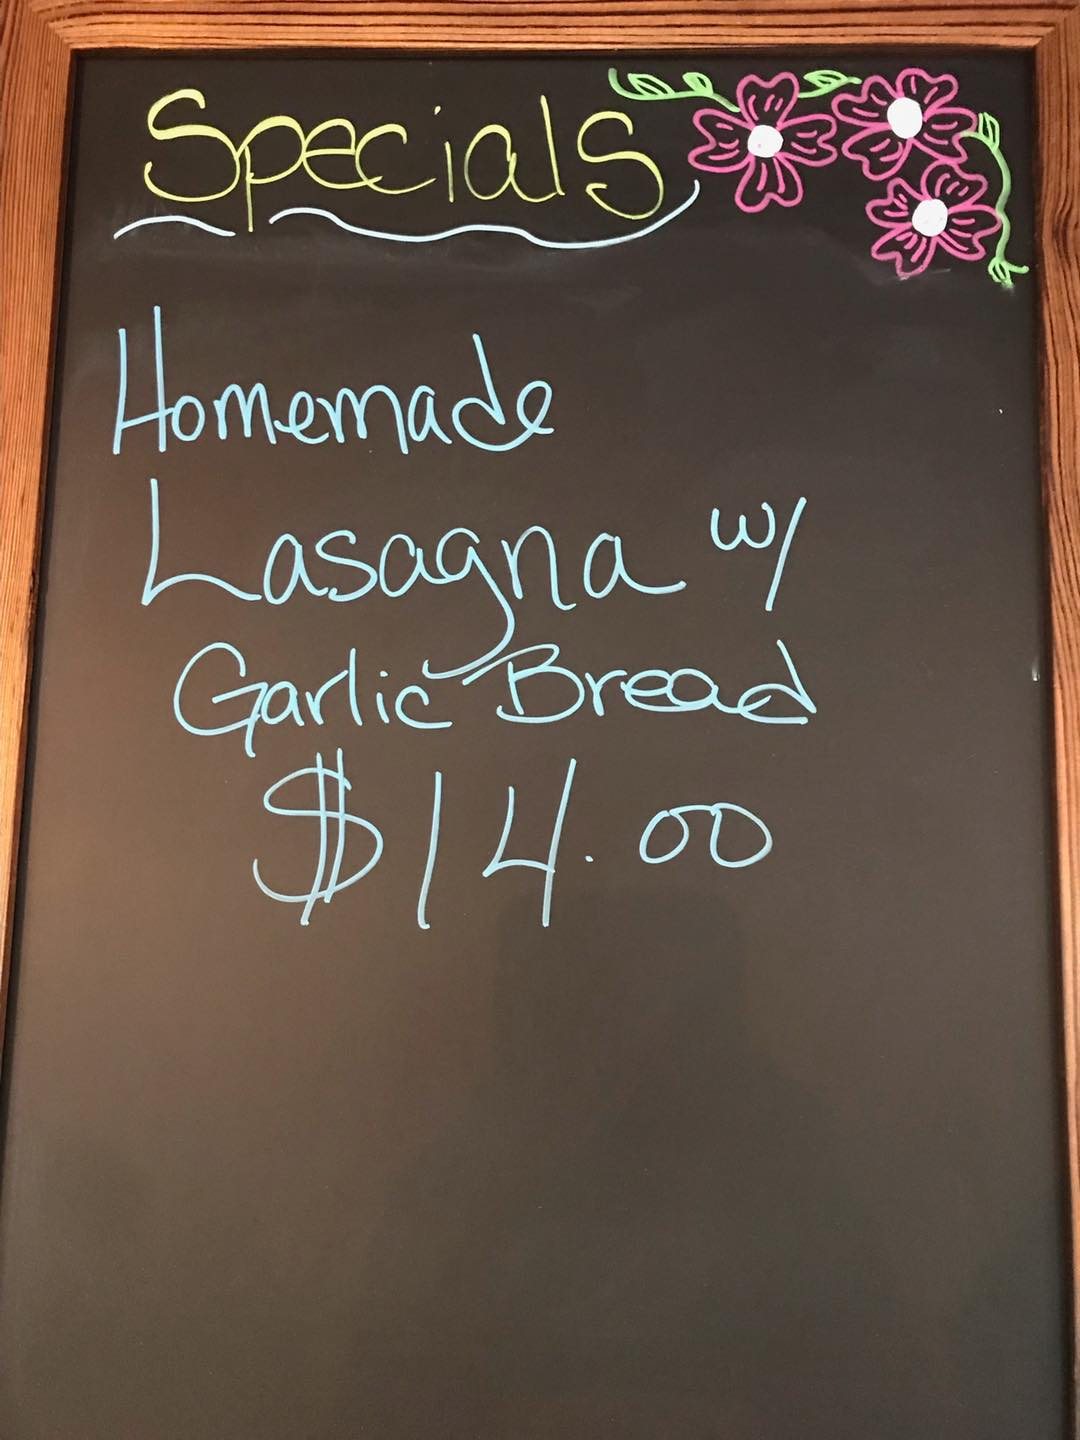 Specials
Homemade
Lasagna w/
Garlic Bread
$14.00